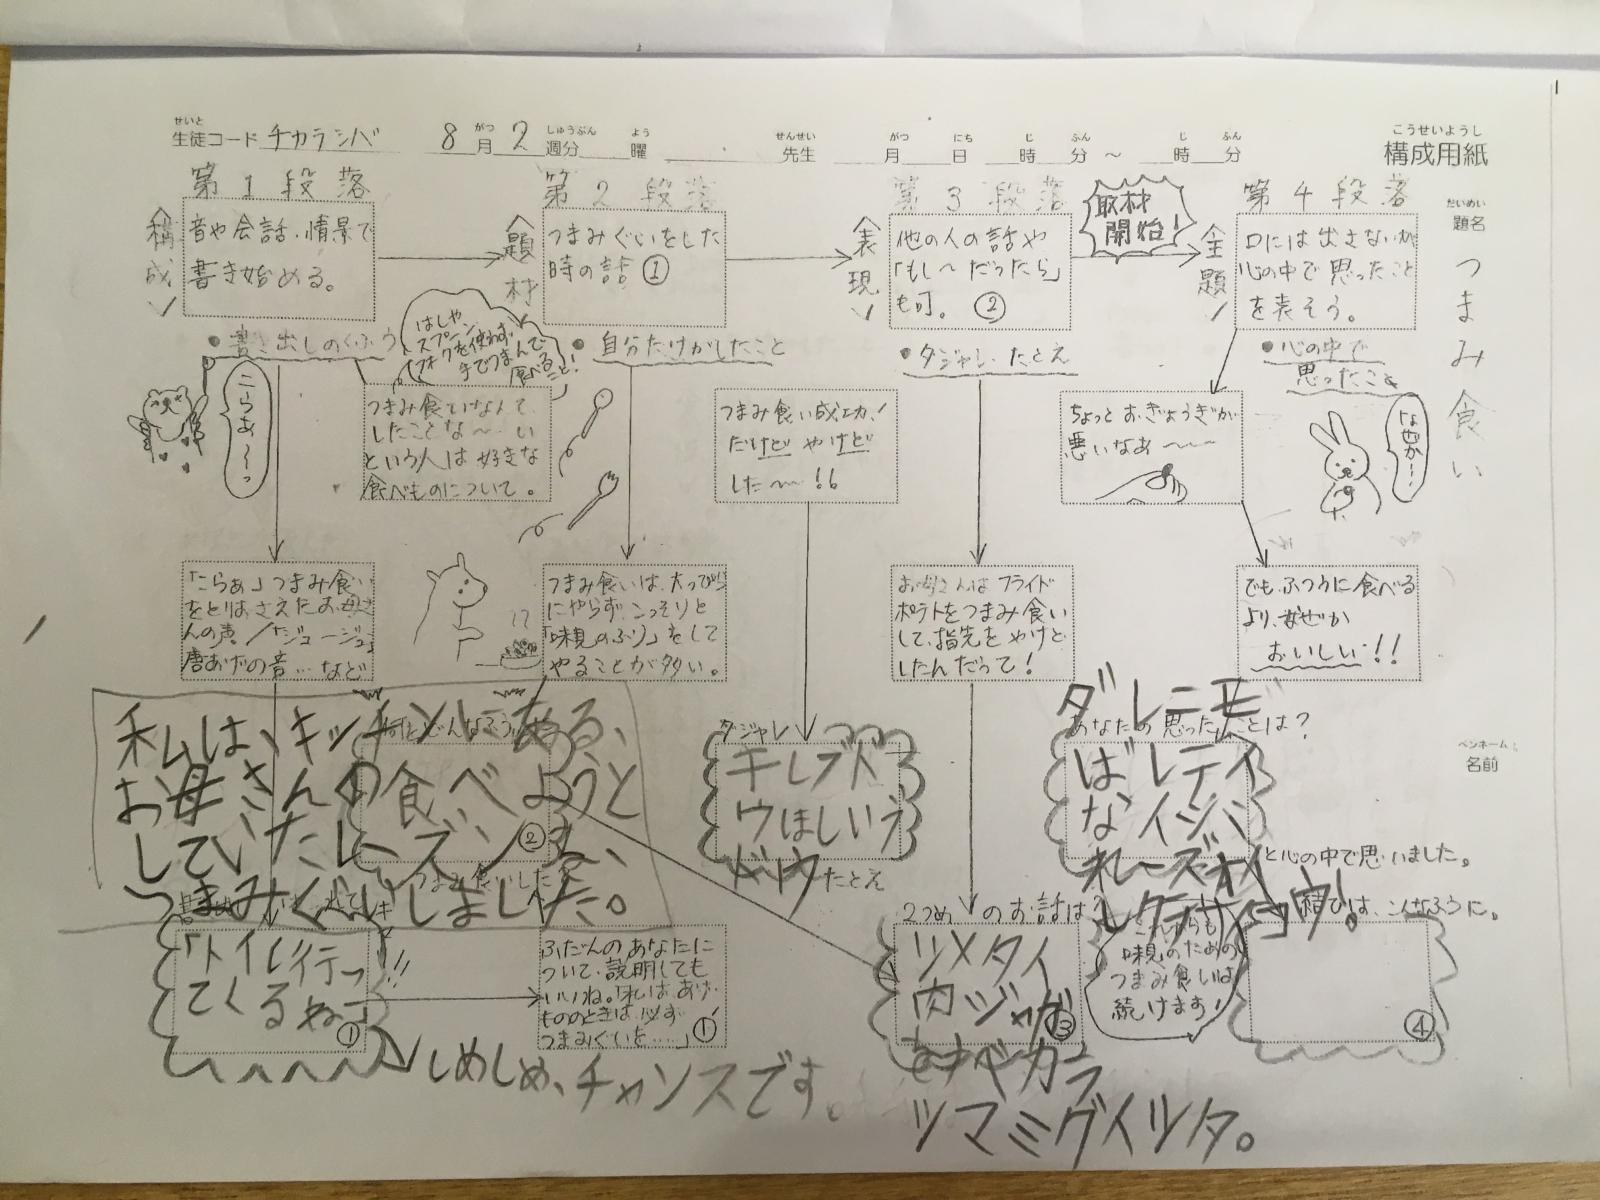 構成用紙
こうせいようし
生徒コード チカラシバ 8月2週分 曜 先生 月 日 時 分 ～ 時 分
せいと がつ しゅうぶん よう せんせい がつ にち じ ふん じ ふん
だいめい
題名
つまみ食い
ペンネーム
名前
第1段落
構成
音や会話、情景で
書き始める。
・書き出しのくふう
こらあ～～っ
はしや
スプーン
フォークを使わず、
手でつまんで
食べること！
つまみ食いなんて、
したことな～～い
という人は好きな
食べものについて。
「こらぁ」つまみ食い
をとりおさえたお母さ
んの声／「ジュージュー」
唐あげの音…など
私は、キッチンにある、
お母さんの食べようと
していたレーズンを、
つまみぐいしました。
②
「トイレ行っ
てくるね」
①
しめしめ、チャンスです。
第2段落
題材
つまみぐいをした
時の話①
・自分だけがしたこと
つまみ食いは、大っぴら
にやらず、こっそりと
「味見のふり」をして
やることが多い。
ふだんのあなたに
ついて、説明しても
いいね。「私は、あげ
もののときは、必ず
つまみぐいを……」①
第3段落
表現
他の人の話や
「もし～だったら」
も可。②
・ダジャレ、たとえ
つまみ食い成功！
だけど やけど
した～～!!
お母さんはフライド
ポテトをつまみ食い
して、指先をやけど
したんだって！
ダジャレ
たとえ
2つめのお話は？
ツメタイ
肉ジャガ
③
ツマミグイツタ。
取材
開始！
第4段落
主題
口には出さないが
心の中で思ったこと
を表そう。
・心の中で
思ったこと
なぜか…
ちょっとおぎょうぎが
悪いなあ～～～
でも、ふつうに食べる
より、なぜか
おいしい!!
あなたの思ったことは？
ダレニモ
ばレテイ
なイシ、
と心の中で思いました。
結びは、こんなふうに。
これからも
味見のための
つまみ食いは
続けます！
④